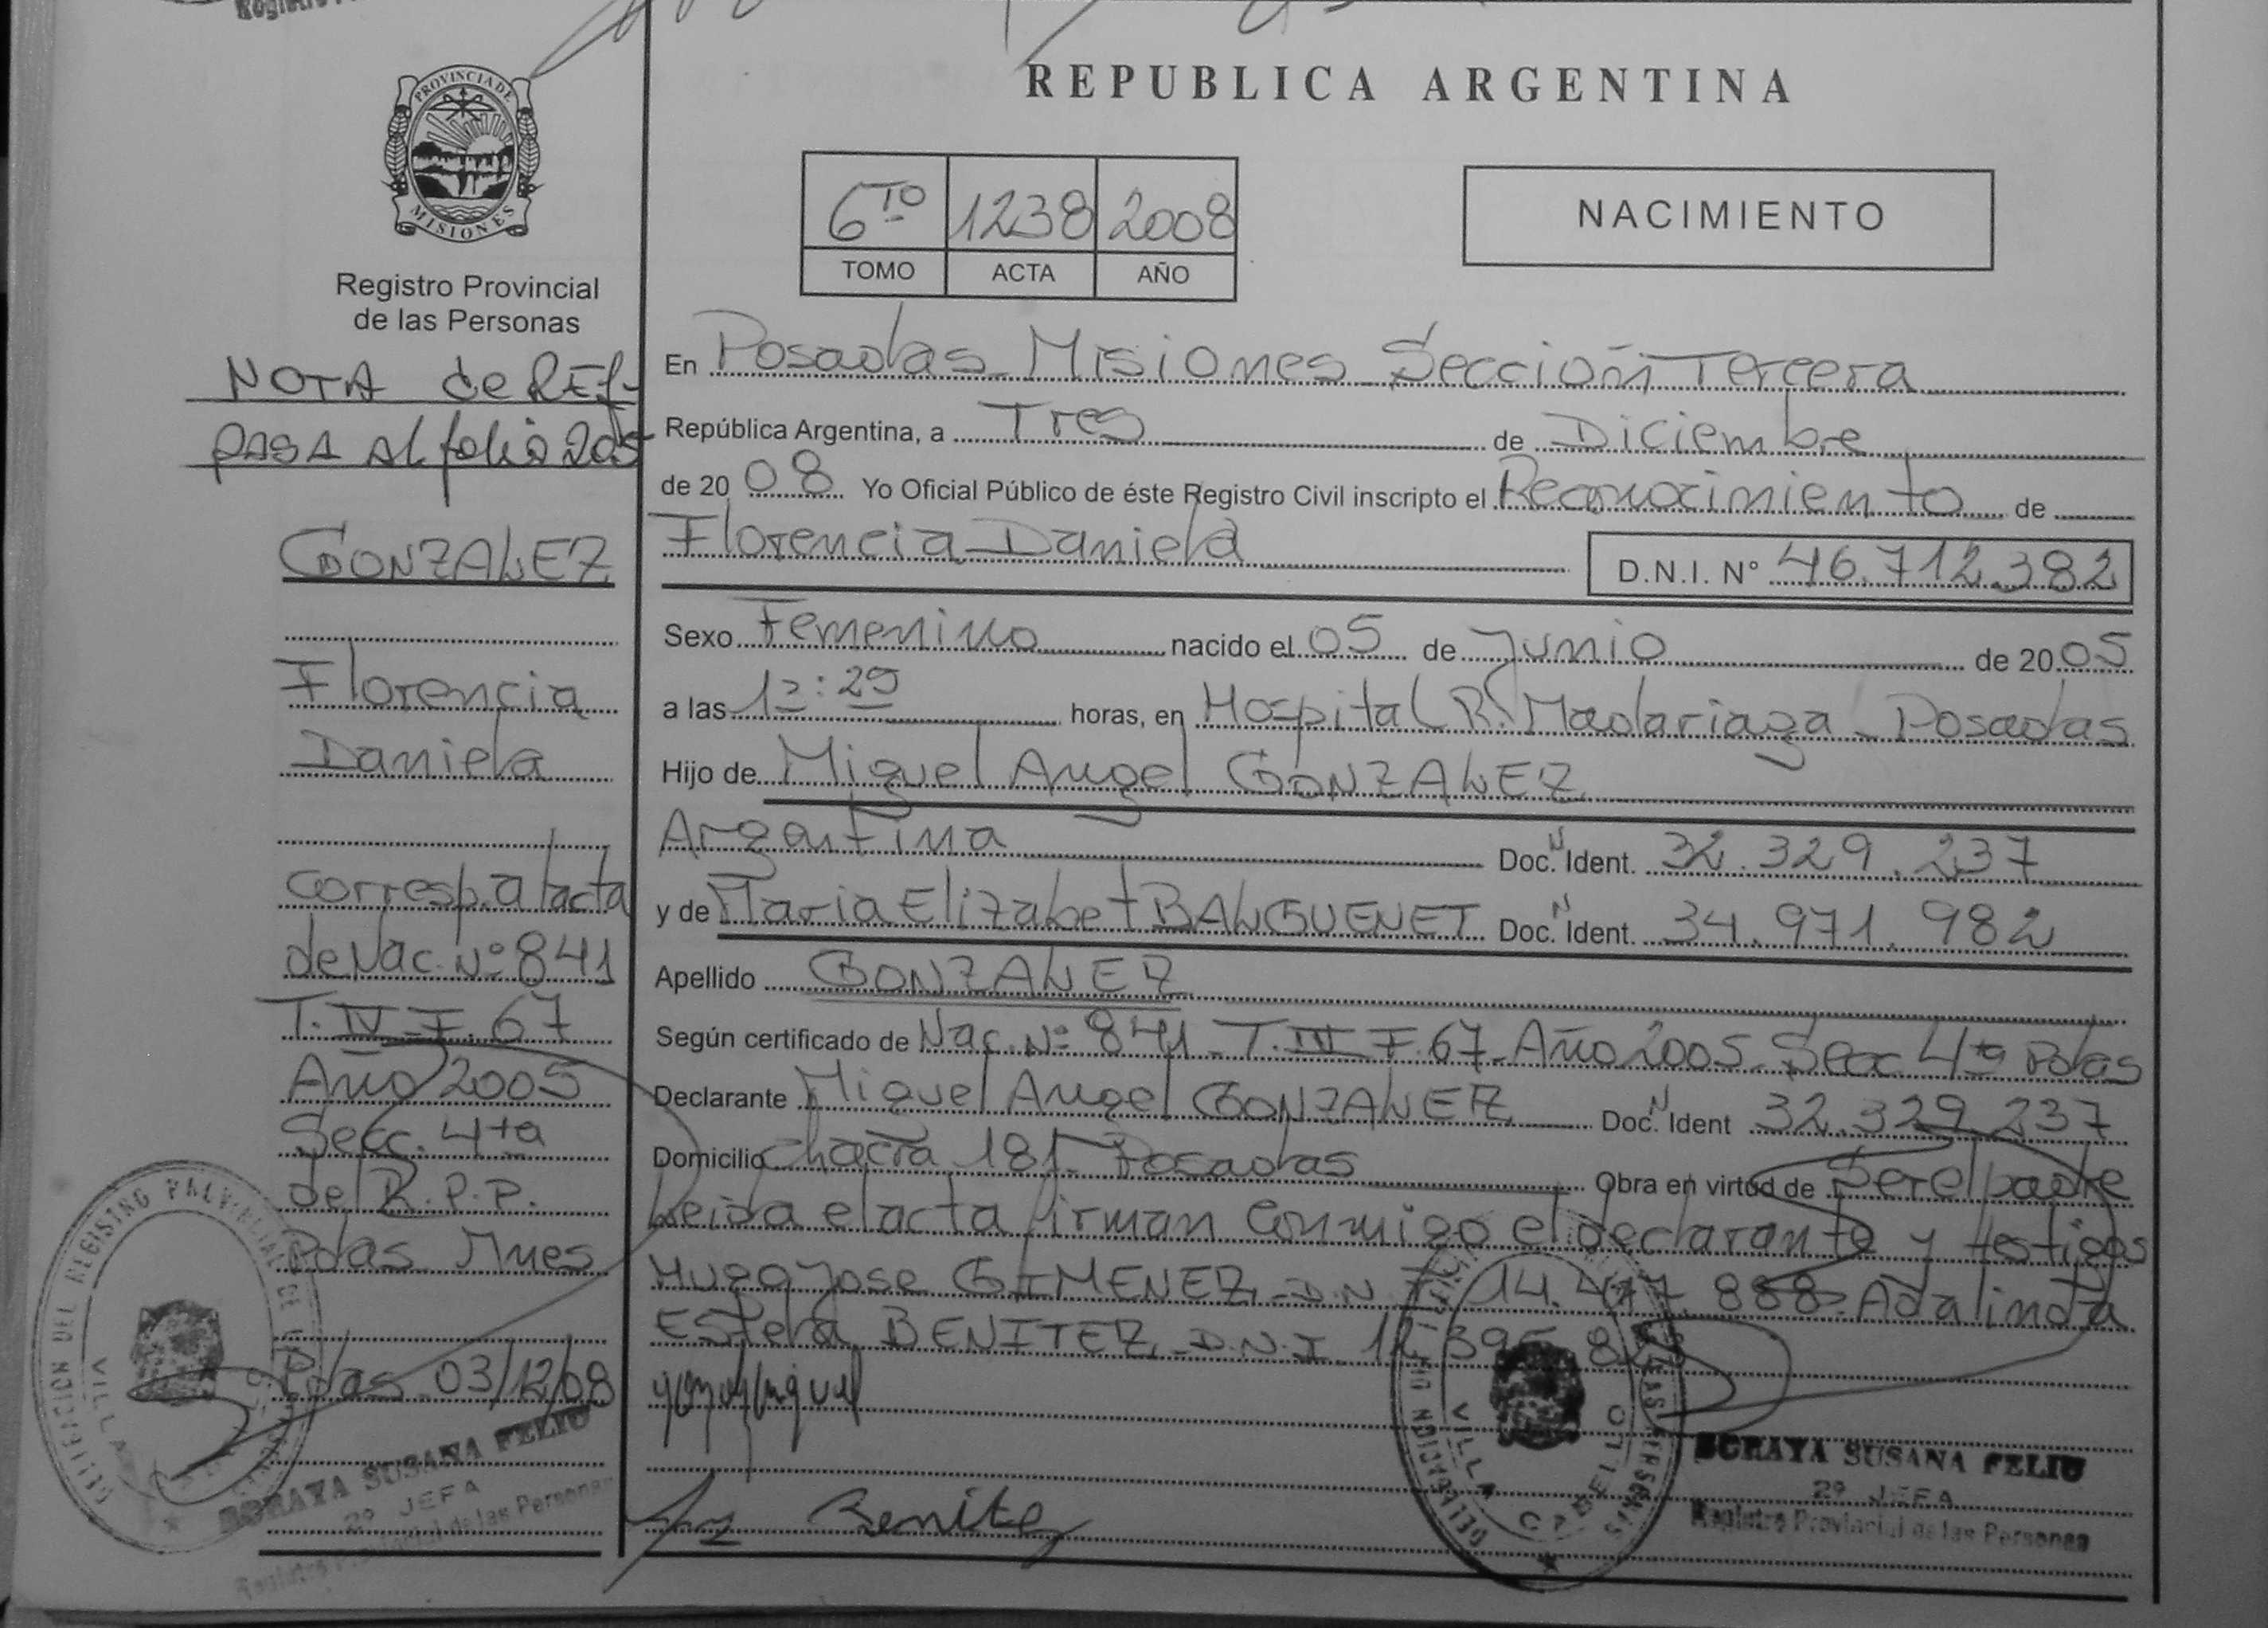 PROVINCIA DE
MISIONES
Registro Provincial
de las Personas
NOTA de REF-
PASA al folio 205
GONZALEZ
Florencia
Daniela
Corresp. al acta
de Nac. Nº 841
T. IV - F. 67
Año 2005
Secc. 4ta
del R.P.P.
Pdas. Mnes
Pdas. 03/12/08
SORAYA SUSANA FELIU
2º JEFA
Registro Provincial de las Personas
REPUBLICA ARGENTINA
6TO 1238 2008
TOMO ACTA AÑO
NACIMIENTO
En Posadas - Misiones - Sección Tercera
República Argentina, a Tres de Diciembre
de 20 08 Yo Oficial Público de éste Registro Civil inscripto el Reconocimiento de
Florencia Daniela
D.N.I. N° 46.712.382
Sexo Femenino nacido el 05 de Junio de 20 05
a las 12:29 horas, en Hospital R. Madariaga - Posadas
Hijo de Miguel Angel GONZALEZ
Argentina Doc. N Ident. 32.329.237
y de Maria Elizabet BALGUENET Doc. N Ident. 34.971.982
Apellido GONZALEZ
Según certificado de Nac. Nº 841 - T. IV F. 67 - Año 2005 - Secc. 4ta Pdas
Declarante Miguel Angel GONZALEZ Doc. N Ident 32.329.237
Domicilio Chacra 181 - Posadas Obra en virtud de Ser el padre
Leida el acta firman conmigo el declarante y testigos
Hugo Jose GIMENEZ - D.N.I. 14. .888 - Adalinda
Estela BENITEZ - D.N.I.
Benitez
VILLA CABELLO
SORAYA SUSANA FELIU
2º JEFA
Registro Provincial de las Personas